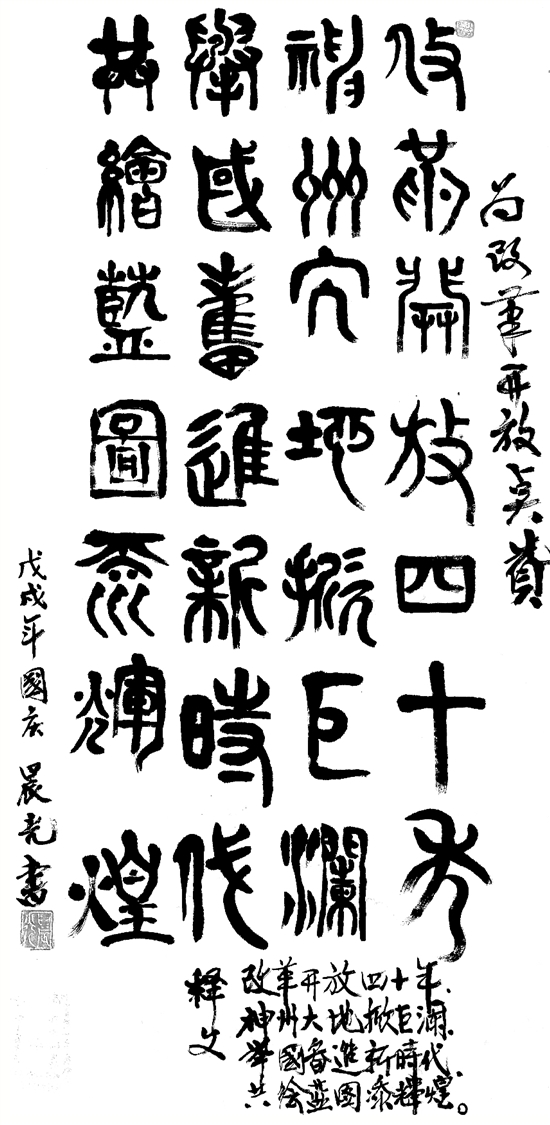 为改革开放点赞
改革開放四十年
神州大地掀巨瀾
舉國奮進新時代
共繪藍圖添輝煌
戊戌年國庆 晨光書
释文
改革开放四十年、
神州大地掀巨澜、
举國奋進新時代、
共绘蓝图添輝煌。